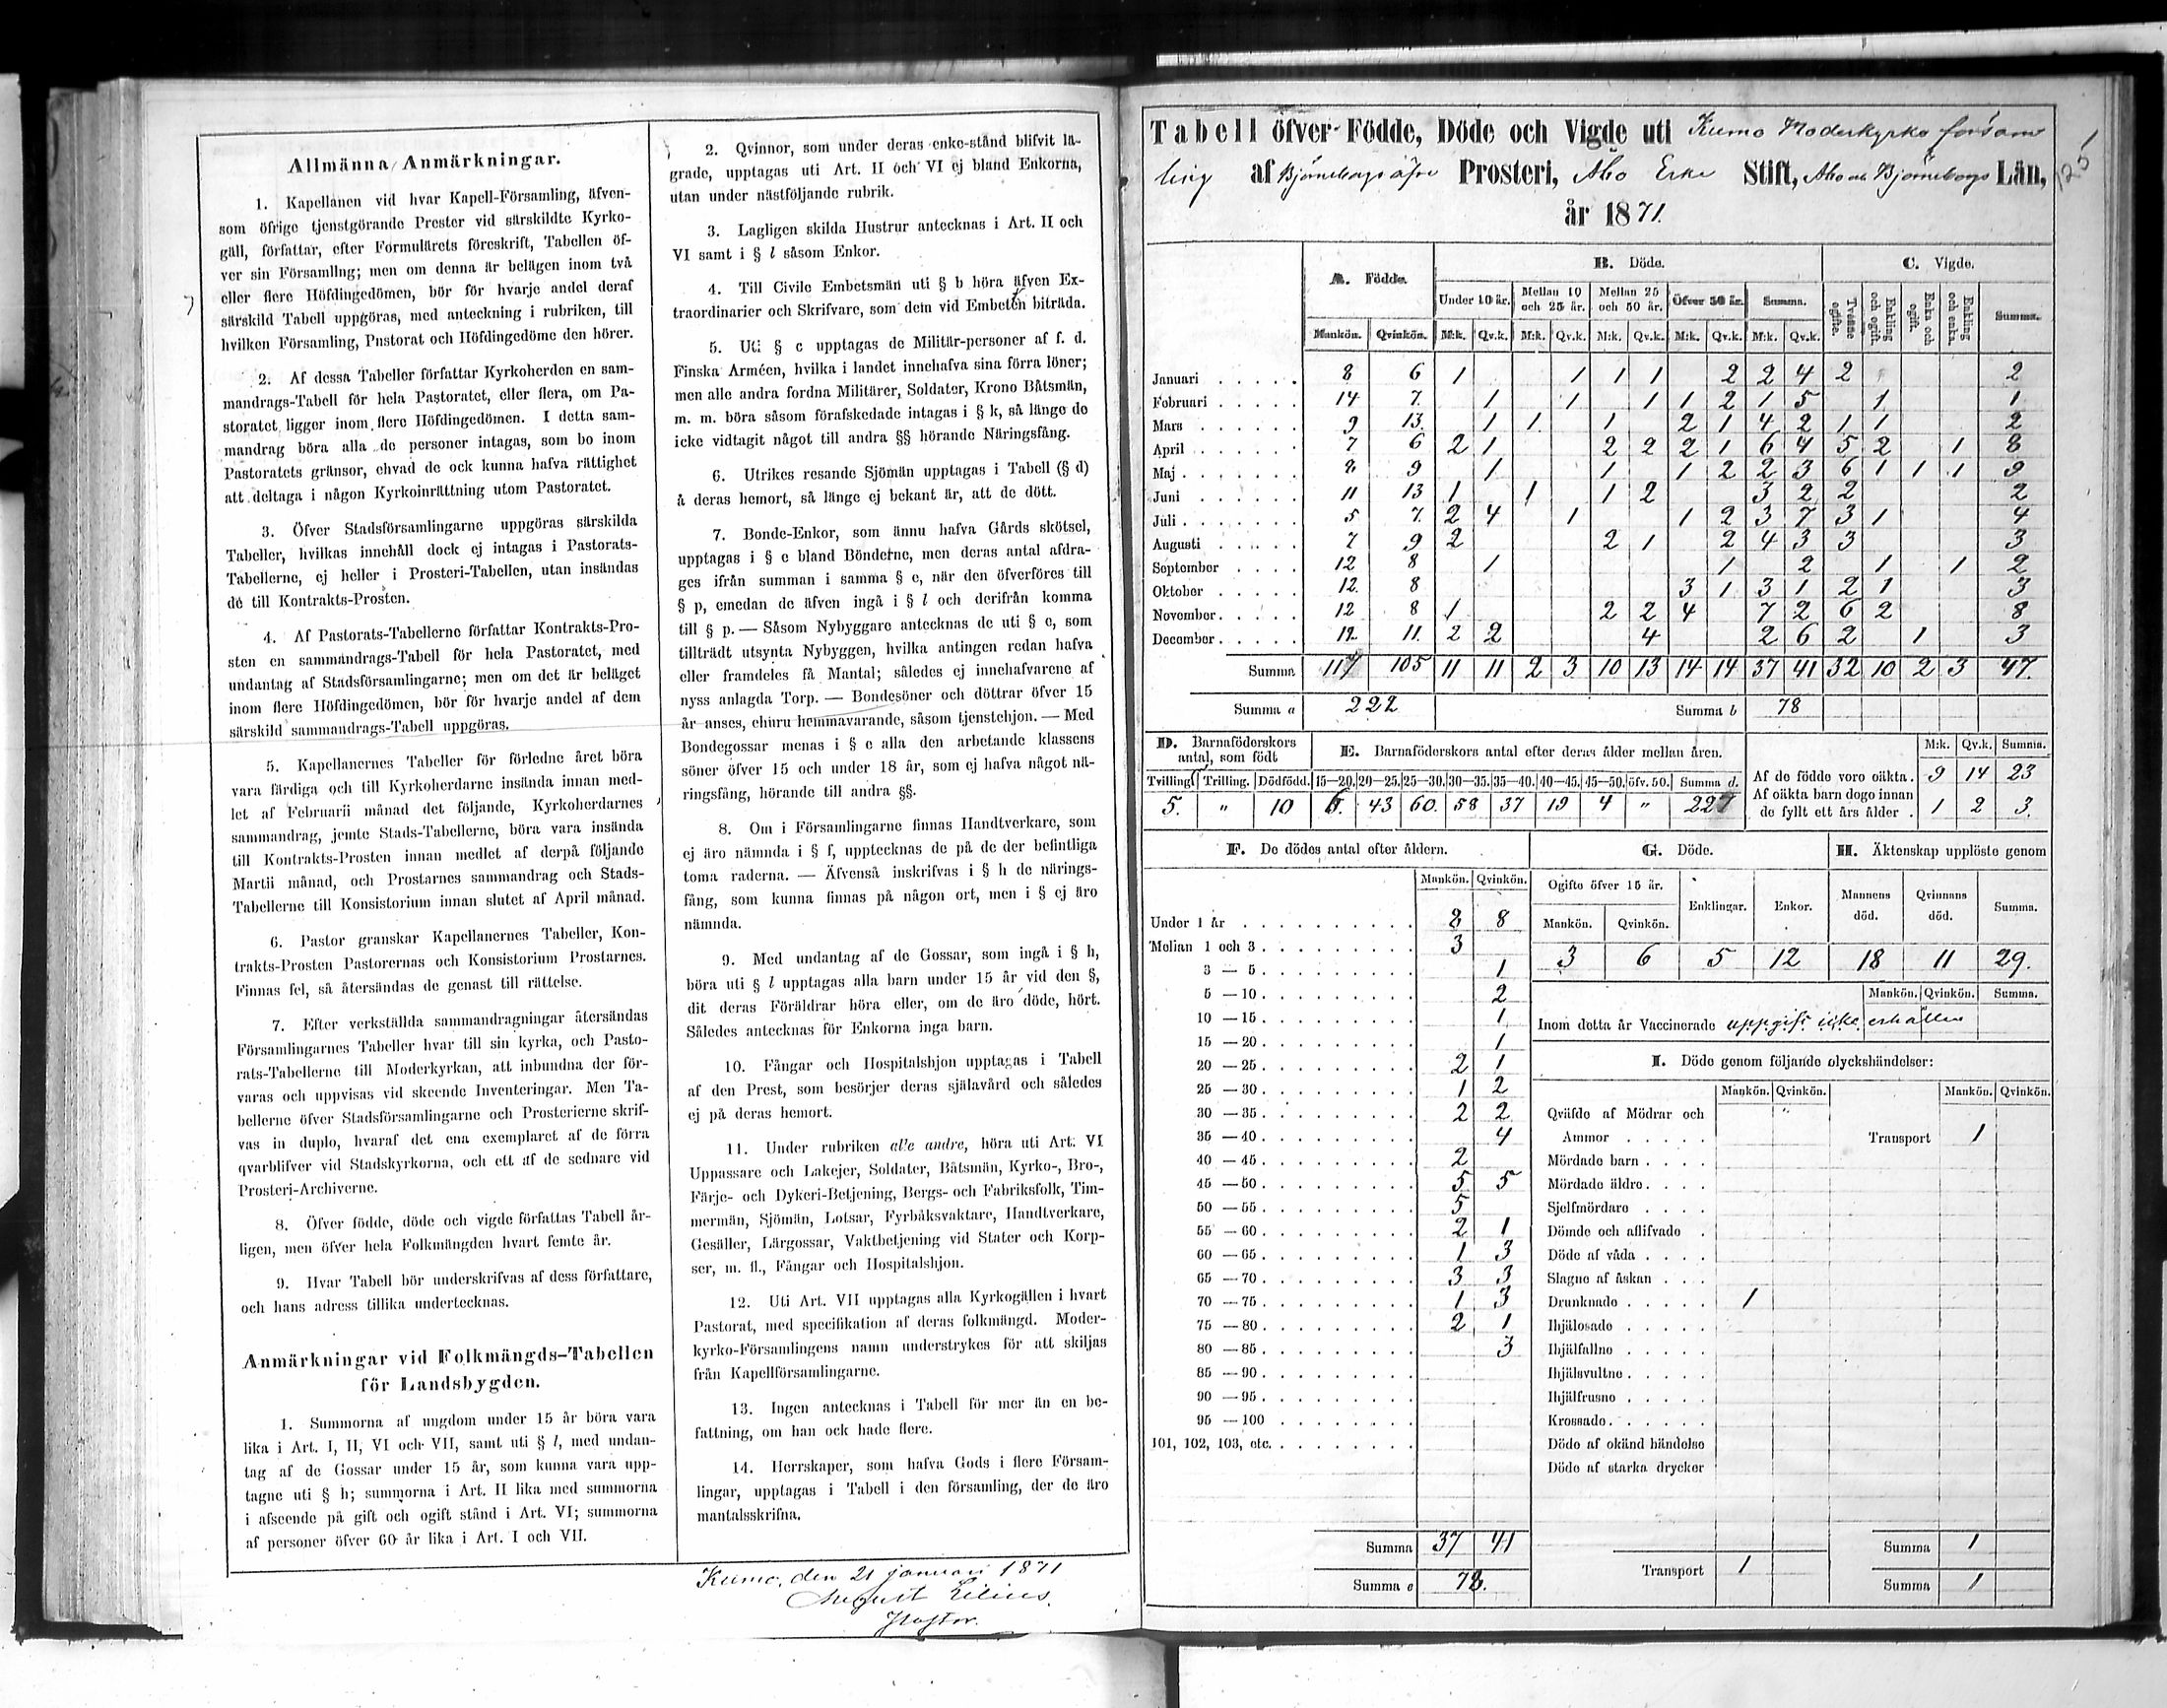 Allmänna Anmärkningar.
1. Kapellanen vid hvar Kapell-Församling, äfven-
som öfrige tjenstgörande Prester vid särskildte Kyrko-
gäll, författar, efter Formulärets föreskrift, Tabellen öf-
ver sin Församling; men om denna är belägen inom två
eller flere Höfdingedömen, bör för hvarje andel deraf
särskild Tabell uppgöras, med anteckning i rubriken, till
hvilken Församling, Pastorat och Höfdingedöme den hörer.
2. Af dessa Tabeller författar Kyrkoherden en sam-
mandrags-Tabell för hela Pastoratet, eller flera, om Pa-
storatet ligger inom flere Höfdingedömen. I detta sam-
mandrag böra alla de personer intagas, som bo inom
Pastoratets gränsor, ehvad de ock kunna hafva rättighet
att deltaga i någon Kyrkoinrättning utom Pastoratet.
3. Öfver Stadsförsamlingarne uppgöras särskilda
Tabeller, hvilkas innehåll dock ej intagas i Pastorats-
Tabellerne, ej heller i Prosteri-Tabellen, utan insändas
de till Kontrakts-Prosten.
4. Af Pastorats-Tabellerne författar Kontrakts-Pro-
sten en sammandrags-Tabell för hela Pastoratet, med
undantag af Stadsförsamlingarne; men om det är beläget
inom flere Höfdingedömen, bör för hvarje andel af dem
särskild sammandrags-Tabell uppgöras.
5. Kapellanernes Tabeller för förledne året böra
vara färdiga och till Kyrkoherdarne insända innan med-
let af Februarii månad det följande, Kyrkoherdarnes
sammandrag, jemte Stads-Tabellerne, böra vara insända
till Kontrakts-Prosten innan medlet af derpå följande
Martii månad, och Prostarnes sammandrag och Stads-
Tabellerne till Konsistorium innan slutet af April månad.
6. Pastor granskar Kapellanernes Tabeller, Kon-
trakts-Prosten Pastorernas och Konsistorium Prostarnes.
Finnas fel, så återsändas de genast till rättelse.
7. Efter verkställda sammandragningar återsändas
Församlingarnes Tabeller hvar till sin kyrka, och Pasto-
rats-Tabellerne till Moderkyrkan, att inbundna der för-
varas och uppvisas vid skeende Inventeringar. Men Ta-
bellerne öfver Stadsförsamlingarne och Prosterierne skrif-
vas in duplo, hvaraf det ena exemplaret af de förra
qvarblifver vid Stadskyrkorna, och ett af de sednare vid
Prosteri-Archiverne.
8. Öfver födde, döde och vigde författas Tabell år-
ligen, men öfver hela Folkmängden hvart femte år.
9. Hvar Tabell bör underskrifvas af dess författare,
och hans adress tillika undertecknas.
Anmärkningar vid Folkmängds-Tabellen
för Landsbygden.
1. Summorna af ungdom under 15 år böra vara
lika i Art. I, II, VI och VII, samt uti § l, med undan-
tag af de Gossar under 15 år, som kunna vara upp-
tagne uti § h; summorna i Art. II lika med summorna
i afseende på gift och ogift stånd i Art. VI; summorna
af personer öfver 60 år lika i Art. I och VII.
2. Qvinnor, som under deras enke-stånd blifvit lä-
grade, upptagas uti Art. II och VI ej bland Enkorna,
utan under nästföljande rubrik.
3. Lagligen skilda Hustrur antecknas i Art. II och
VI samt i § l såsom Enkor.
4. Till Civile Embetsmän uti § b höra äfven Ex-
traordinarier och Skrifvare, som dem vid Embeten biträda.
5. Uti § c upptagas de Militär-personer af f. d.
Finska Arméen, hvilka i landet innehafva sina förra löner;
men alle andra fordna Militärer, Soldater, Krono Båtsmän,
m. m. böra såsom förafskedade intagas i § k, så länge de
icke vidtagit något till andra §§ hörande Näringsfång.
6. Utrikes resande Sjömän upptagas i Tabell (§ d)
å deras hemort, så länge ej bekant är, att de dött.
7. Bonde-Enkor, som ännu hafva Gårds skötsel,
upptagas i § e bland Bönderne, men deras antal afdra-
ges ifrån summan i samma § e, när den öfverföres till
§ p, emedan de äfven ingå i § l och derifrån komma
till § p. — Såsom Nybyggare antecknas de uti § e, som
tillträdt utsynta Nybyggen, hvilka antingen redan hafva
eller framdeles få Mantal; således ej innehafvarene af
nyss anlagda Torp. — Bondesöner och döttrar öfver 15
år anses, ehuru hemmavarande, såsom tjenstehjon. — Med
Bondegossar menas i § e alla den arbetande klassens
söner öfver 15 och under 18 år, som ej hafva något nä-
ringsfång, hörande till andra §§.
8. Om i Församlingarne finnas Handtverkare, som
ej äro nämnda i § f, upptecknas de på de der befintliga
toma raderna. — Äfvenså inskrifvas i § h de närings-
fång, som kunna finnas på någon ort, men i § ej äro
nämnda.
9. Med undantag af de Gossar, som ingå i § h,
böra uti § l upptagas alla barn under 15 år vid den §,
dit deras Föräldrar höra eller, om de äro döde, hört.
Således antecknas för Enkorna inga barn.
10. Fångar och Hospitalshjon upptagas i Tabell
af den Prest, som besörjer deras själavård och således
ej på deras hemort.
11. Under rubriken alle andre, höra uti Art. VI
Uppassare och Lakejer, Soldater, Båtsmän, Kyrko-, Bro-,
Färje- och Dykeri-Betjening, Bergs- och Fabriksfolk, Tim-
mermän, Sjömän, Lotsar, Fyrbåksvaktare, Handtverkare,
Gesäller, Lärgossar, Vaktbetjening vid Stater och Korp-
ser, m. fl., Fångar och Hospitalshjon.
12. Uti Art. VII upptagas alla Kyrkogällen i hvart
Pastorat, med specifikation af deras folkmängd. Moder-
kyrko-Församlingens namn understrykes för att skiljas
från Kapellförsamlingarne.
13. Ingen antecknas i Tabell för mer än en be-
fattning, om han ock hade flere.
14. Herrskaper, som hafva Gods i flere Försam-
lingar, upptagas i Tabell i den församling, der de äro
mantalsskrifna.
Kumo, den 21 januari 1871
August Lilius.
Pastor.
Tabell öfver Födde, Döde och Vigde uti Kumo Moderkyrko försam
ling af Björneborgs öfre Prosteri, Åbo Erke Stift, Åbo och Björneborgs Län,
125
år 1871.
A. Födde. B. Döde. C. Vigde.
Under 10 år. Mellan 10 och 25 år. Mellan 25 och 50 år. Öfver 50 år. Summa. Tvänne ogifte. Enkling och ogift. Enka och ogift. Enkling och enka. Summa.
Mankön. Qvinkön. M:k. Qv.k. M:k. Qv.k. M:k. Qv.k. M:k. Qv.k. M:k. Qv.k.
Januari 8 6 1 1 1 1 2 2 4 2 2
Februari 14 7. 1 1 1 1 2 1 5 1 1
Mars 9 13. 1 1 1 2 1 4 2 1 1 2
April 7 6 2 1 2 2 2 1 6 4 5 2 1 8
Maj 8 9 1 1 1 2 2 3 6 1 1 1 9
Juni 11 13 1 1 1 2 3 2 2 2
Juli 5 7. 2 4 1 1 2 3 7 3 1 4
Augusti 7 9 2 2 1 2 4 3 3 3
September 12 8 1 1 2 1 1 2
Oktober 12. 8 3 1 3 1 2 1 3
November 12 8 1 2 2 4 7 2 6 2 8
December 12. 11. 2 2 4 2 6 2 1 3
Summa 117 105 11 11 2 3 10 13 14 14 37 41 32 10 2 3 47.
Summa a 222 Summa b 78
D. Barnaföderskors antal, som födt
E. Barnaföderskors antal efter deras ålder mellan åren.
M:k. Qv.k. Summa.
Tvilling. Trilling. Dödfödd. 15—20. 20—25. 25—30. 30—35. 35—40. 40—45. 45—50. öfv. 50. Summa d.
5. " 10 6. 43 60. 58 37 19 4 " 227
Af de födde voro oäkta. 9 14 23
Af oäkta barn dogo innan
de fyllt ett års ålder. 1 2 3.
F. De dödes antal efter åldern.
Mankön. Qvinkön.
Under 1 år 8 8
Mellan 1 och 3 3
3 — 5 1
5 — 10 2
10 — 15 1
15 — 20 1
20 — 25 2 1
25 — 30 1 2
30 — 35 2 2
35 — 40 4
40 — 45 2
45 — 50 5 5
50 — 55 5
55 — 60 2 1
60 — 65 1 3
65 — 70 3 3
70 — 75 1 3
75 — 80 2 1
80 — 85 3
85 — 90
90 — 95
95 — 100
101, 102, 103, etc.
Summa 37 41
Summa e 78.
G. Döde. H. Äktenskap upplöste genom
Ogifte öfver 15 år. Enklingar. Enkor. Mannens död. Qvinnans död. Summa.
Mankön. Qvinkön.
3 6 5 12 18 11 29.
Mankön. Qvinkön. Summa.
Inom detta år Vaccinerade uppgift icke erhållen
I. Döde genom följande olyckshändelser:
Mankön. Qvinkön. Mankön. Qvinkön.
Qväfde af Mödrar och
Ammor " Transport 1
Mördade barn
Mördade äldre
Sjelfmördare
Dömde och aflifvade
Döde af våda
Slagne af åskan
Drunknade 1
Ihjälosade
Ihjälfallne
Ihjälsvultne
Ihjälfrusne
Krossade
Döde af okänd händelse
Döde af starka drycker
Summa 1
Transport 1
Summa 1